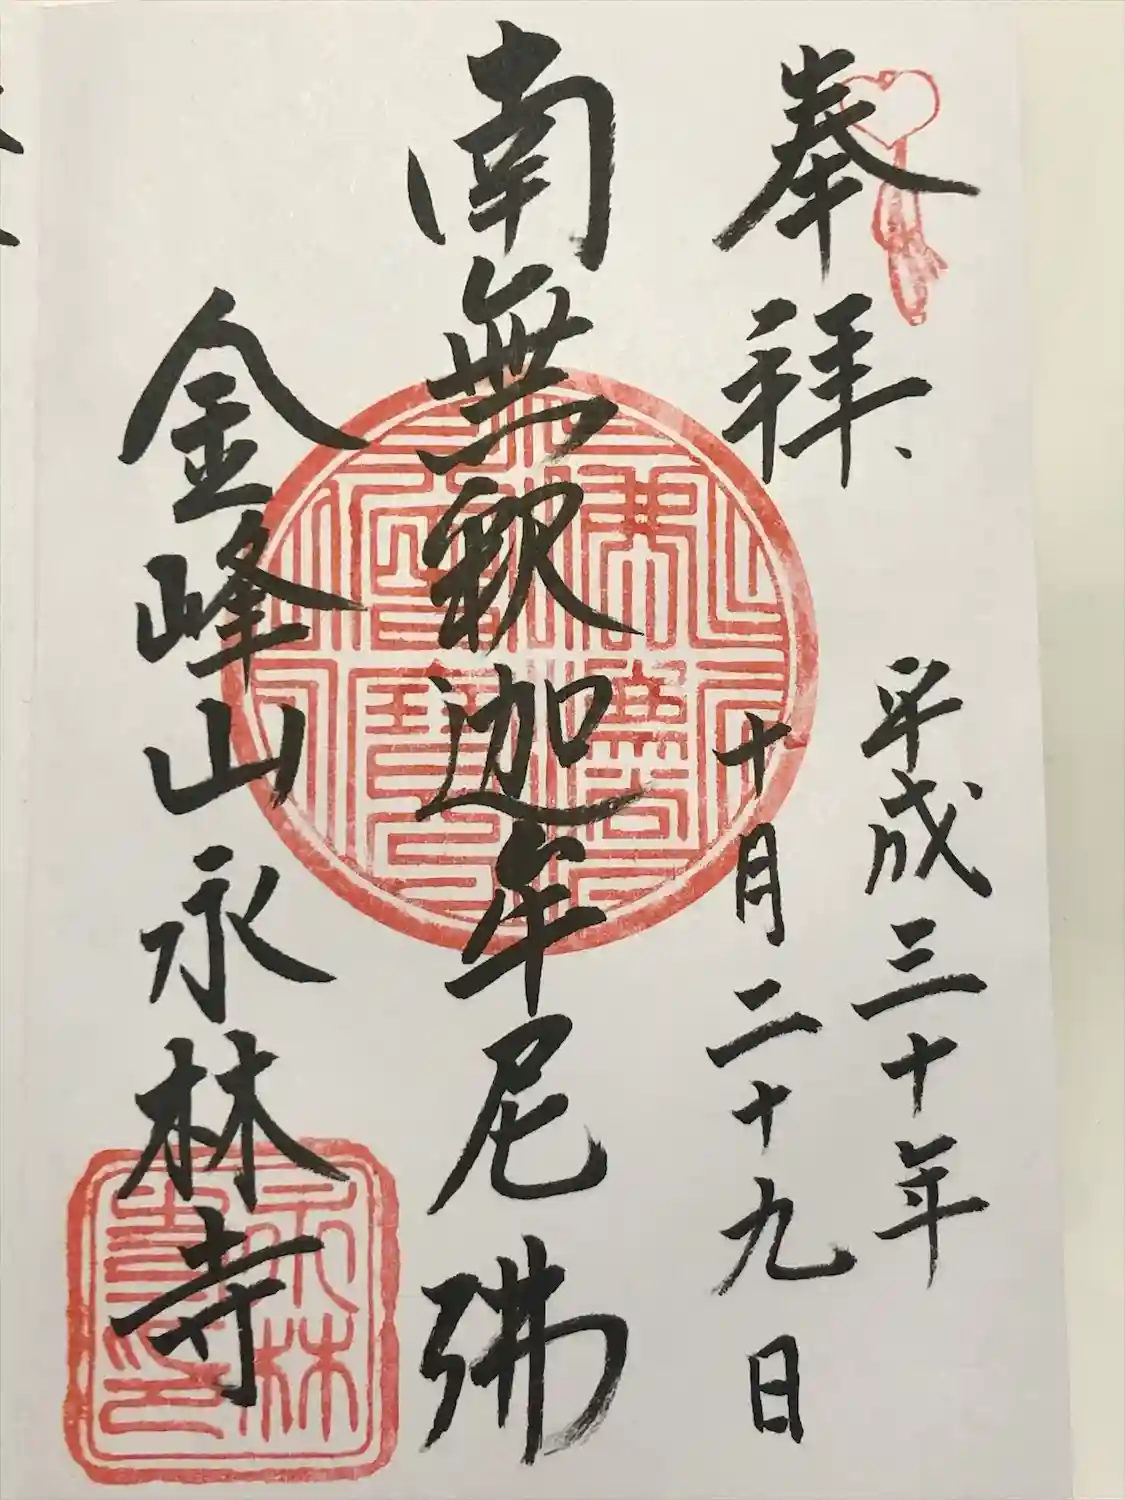 奉拝、
平成三十年
十月二十九日
南無釈迦牟尼佛
金峰山永林寺